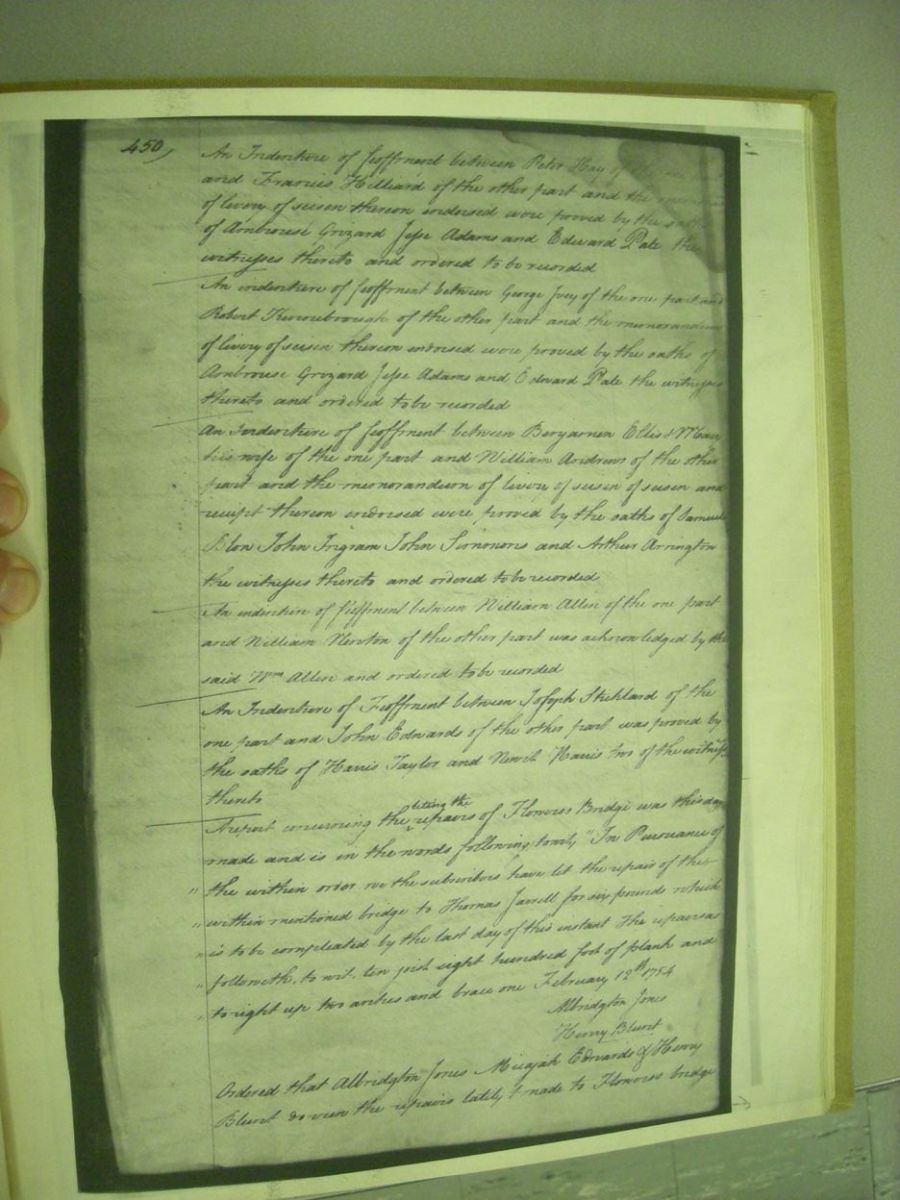 450,
An Indenture of feoffment between Peter Hay of
and Francis Hilliard of the other part and the memorandum
of livery of seisen thereon endorsed were proved by the oaths
of Ambrouse Grizard Jesse Adams and Edward Pate the
witnesses thereto and ordered to be recorded
An indenture of feoffment between George Ivey of the one part and
Robert of the other part and the memorandum
of livery of seisen thereon endorsed were proved by the oaths of
Ambrouse Grizard Jesse Adams and Edward Pate the witnesses
thereto and ordered to be recorded
An Indenture of feoffment between Benjamen Ellis & Mary
his wife of the one part and William Andrews of the other
part and the memorandum of livery of seisen of seisen and
receipt thereon endorsed were proved by the oaths of Samuel
John Ingram John Simmons and Arthur Arrington
the witnesses thereto and ordered to be recorded
An indenture of feoffment between William Allen of the one part
and William Newton of the other part was acknowledged by the
said Wm Allen and ordered to be recorded
An Indenture of Feoffment between Joseph Stricklard of the
one part and John Edwards of the other part was proved by
the oaths of Harris Taylor and Newit Harris two of the witnesses
thereto
leting the
A report concerning the repairs of Flowers Bridge was this day
made and is in the words following, towit, "In Pursuance of
" the within order we the subscribers have let the repair of the
" within mentioned bridge to Thomas Jarrell for six pounds which
" is to be compleated by the last day of this instant The repairs as
" followeth, to wit, ten joist eight hundred foot of plank and
" to right up two arches and brace one February 12th 1784
Albridgton Jones
Henry Blunt
Ordered that Albridgton Jones Micajah Edwards & Henry
Blunt do view the repairs lately made to Flowers bridge